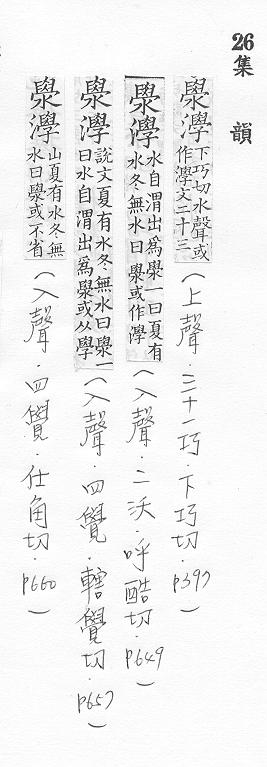 26集 韻
澩㶅下巧切水聲或作㶅文二十三(上聲.三十一巧.下巧切.P397)
澩㶅水自渭出爲澩一曰夏有水冬無水曰澩或作㶅(入聲.二沃.呼酷切.P649)
澩㶅說文夏有水冬無水曰澩一曰水自渭出爲澩或从學(入聲.四覺.轄覺切.P657)
澩㶅山夏有水冬無水曰澩或不省(入聲.四覺.仕角切.P660)